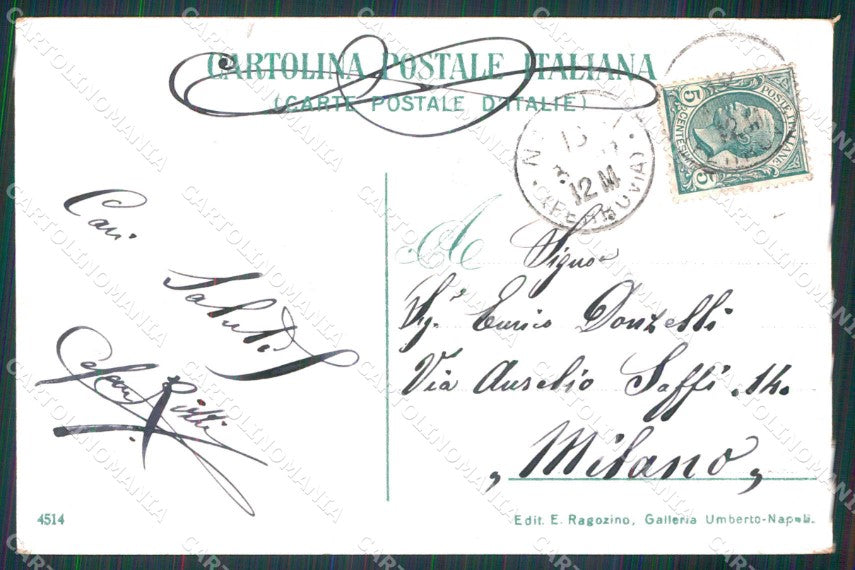 CARTOLINA POSTALE ITALIANA
(CARTE POSTALE D'ITALIE)
POSTE ITALIANE
CENTESIMI
5
5
12 M
(FERROVIA)
Cari
Saluti
A Signor
Sg. Enrico Donzelli
Via Aurelio Saffi. 14.
„Milano„
4514
Edit. E. Ragozino, Galleria Umberto-Napoli.
CARTOLINOMANIA